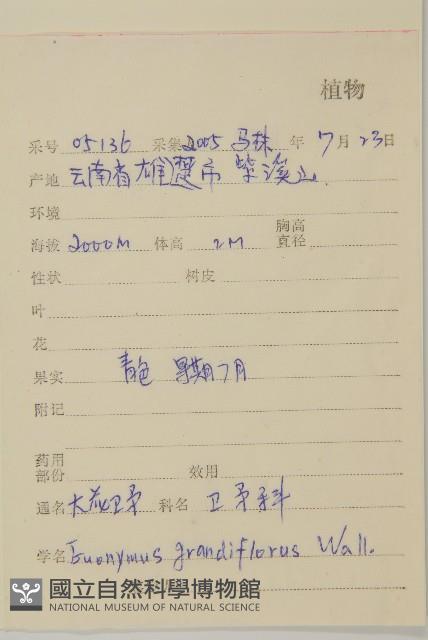 植物
采号 05136 采集 2005 马林 年 7月 23日
产地 云南省雄楚市紫溪山
环境
海拔 2000M 体高 2M 胸高直径
性状 树皮
叶
花
果实 青色 果期7月
附记
药用部份 效用
通名 大花卫矛 科名 卫矛科
学名 Euonymus grandiflorus Wall.
國立自然科學博物館
NATIONAL MUSEUM OF NATURAL SCIENCE